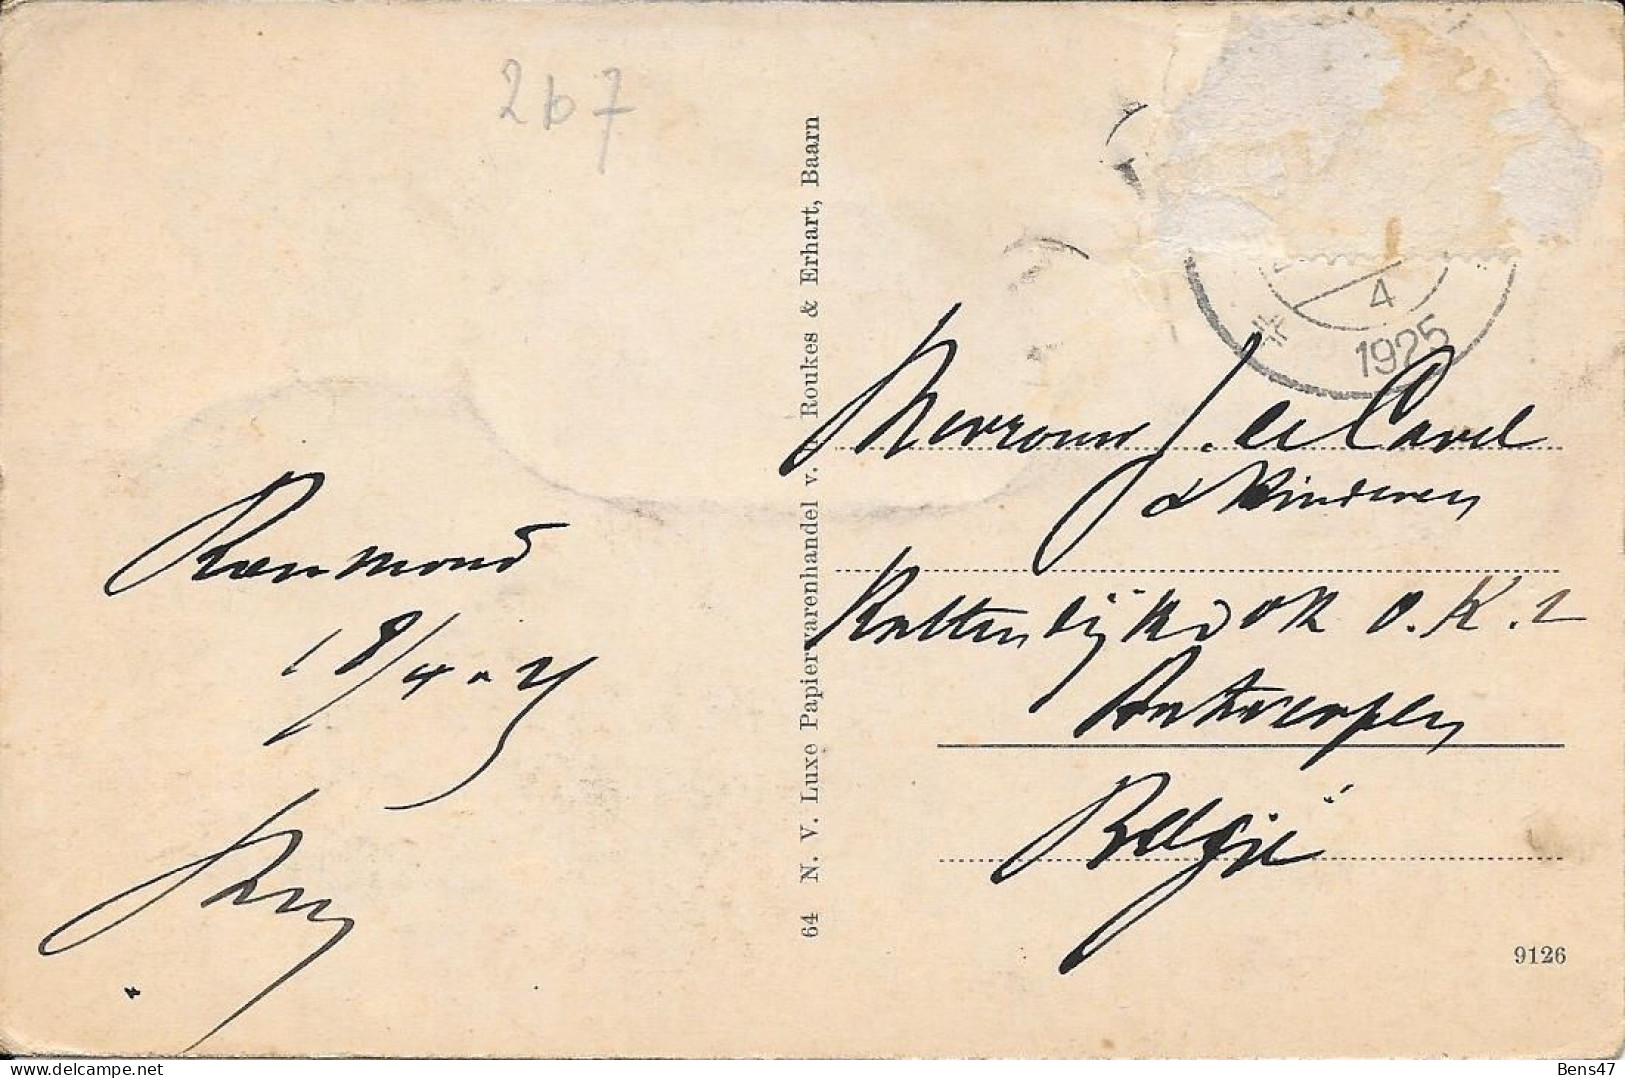 2b7
4
1925
64 N. V. Luxe Papierwarenhandel v. Roukes & Erhart, Baarn
Mevrouw J. de Cavel
& Kinderen
Kattendijkdok O.K. 2
Antwerpen
België
Roermond
18/4-25
9126
Bens47